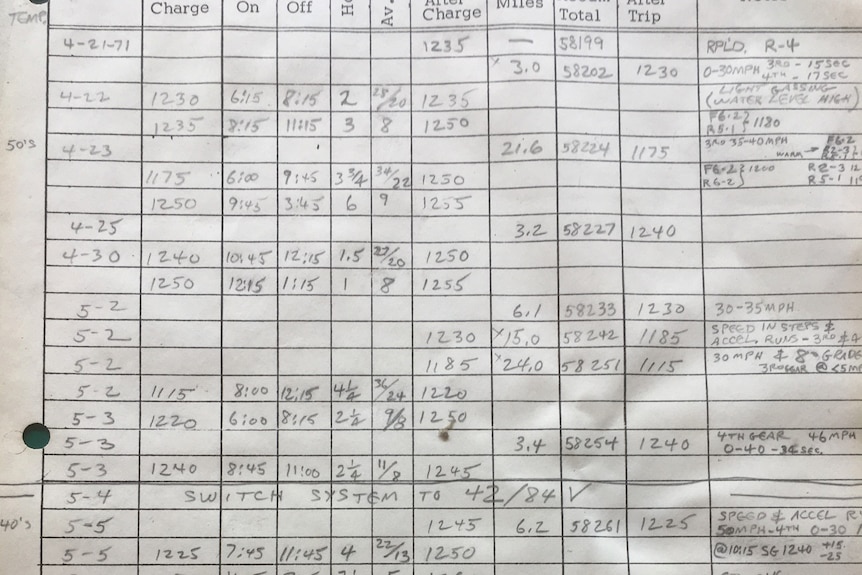 TEMP. Charge On Off Av. After Charge Miles Total After Trip
4-21-71 1235 — 58199 RPL'D. R-4
x 3.0 58202 1230 0-30MPH 3RD - 15SEC
4TH - 17SEC
4-22 1230 6:15 8:15 2 25/20 1235 LIGHT GASSING
(WATER LEVEL HIGH)
1235 8:15 11:15 3 8 1250 F6-2 } 1180
R5-1
50'S 4-23 21.6 58224 1175 3RD 35-40MPH
WARM → F6-2
1175 6:00 9:45 3 3/4 34/22 1250 F6-2 } 1200 R2-3
R6-2 R5-1
1250 9:45 3:45 6 9 1255
4-25 3.2 58227 1240
4-30 1240 10:45 12:15 1.5 27/20 1250
1250 12:15 1:15 1 8 1255
5-2 6.1 58233 1230 30-35MPH
5-2 1230 x 15.0 58242 1185 SPEED IN STEPS &
ACCEL. RUNS - 3RD & 4
5-2 1185 x 24.0 58251 1115 30MPH & 8% GRADE
3RD GEAR @ <5M
5-2 1115 8:00 12:15 4 1/4 36/24 1220
5-3 1220 6:00 8:15 2 1/4 9/8 1250
5-3 3.4 58254 1240 4TH GEAR 46MPH
0-40 - 36SEC.
5-3 1240 8:45 11:00 2 1/4 11/8 1245
5-4 SWITCH SYSTEM TO 42/84 V
40'S 5-5 1245 6.2 58261 1225 SPEED & ACCEL R
50MPH-4TH 0-30
5-5 1225 7:45 11:45 4 22/13 1250 @10:15 SG 1240 +15
-25